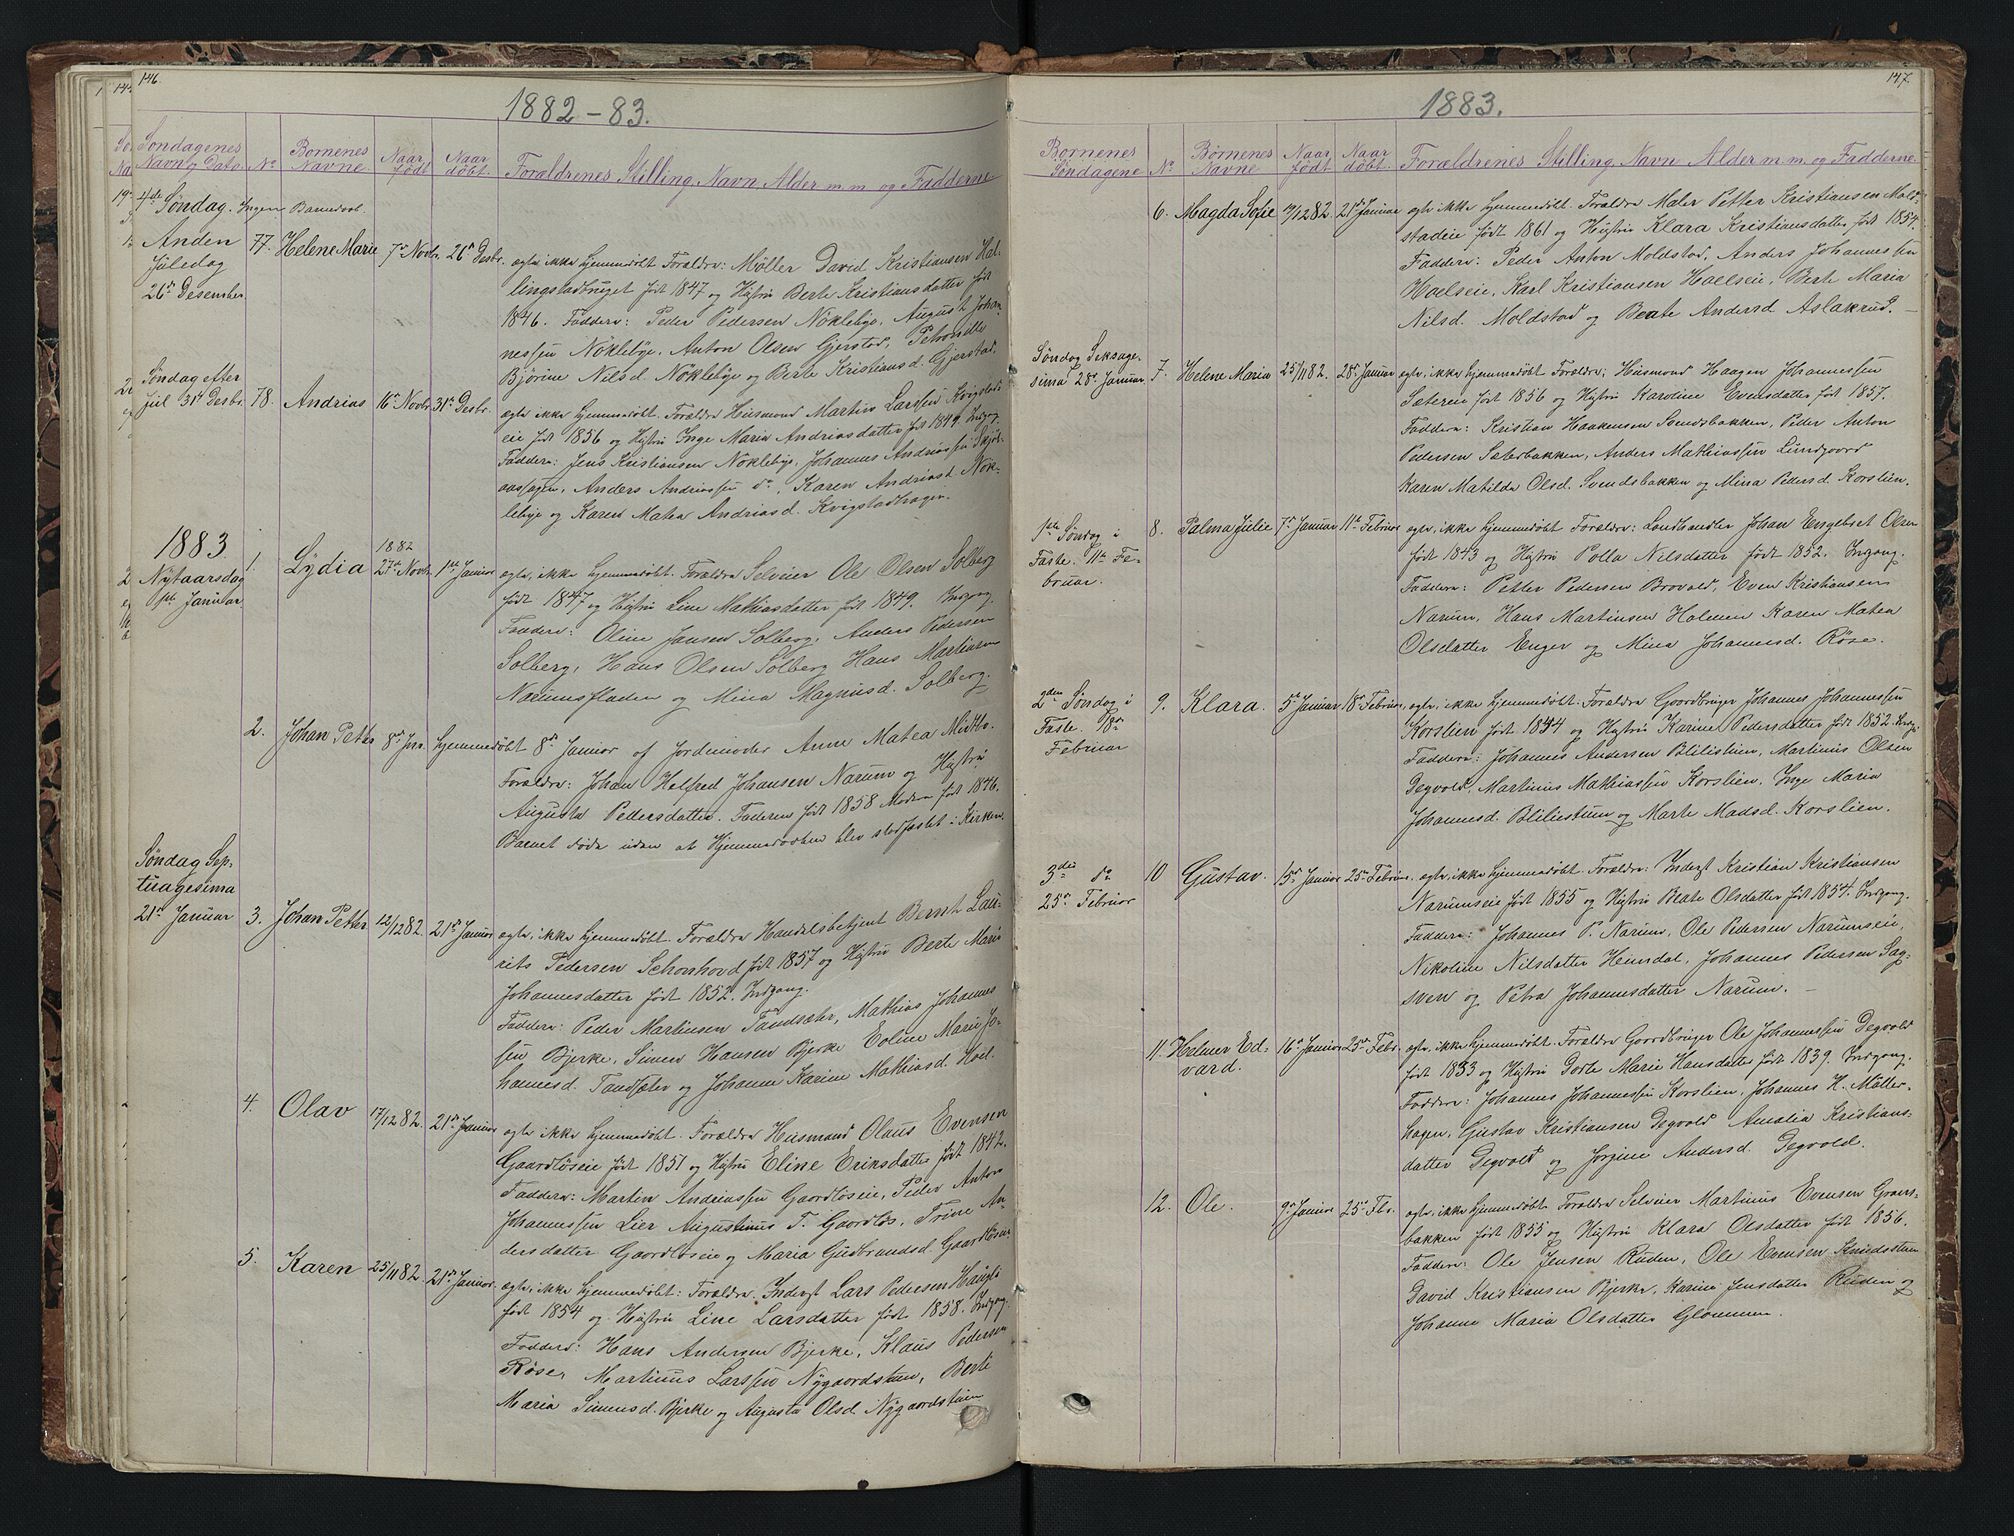 146.
1882-83.
Söndagenes Navn og Dato No Börnenes Navne Naar födt Naar döbt Forældrenes Stilling, Navn, Alder m. m. og Fadderne
4de Søndag. Ingen Barnedaab.
Anden Juledag 26de Desember
77. Helene Marie 7de Novbr. 26de Desbr.
ægte, ikke hjemmedøbt. Forældre: Møller David Kristiansen Hal-
lingstadbruget født 1847 og Hustru Berte Kristiansdatter født
1846. Faddere: Peder Pedersen Nøklebye, August Johan-
nessen Nøklebye, Anton Olsen Gjerstad, Petronelle
Bjørine Nilsd. Nøklebye og Berte Kristiansd. Gjerstad.
Søndag efter Jul 31te Desbr.
78. Andrias 16de Novbr. 31te Desbr.
ægte ikke hjemmedøbt. Forældre Husmand Martin Larssen Kvigstads
eie født 1856 og Hustru Inge Maria Andriasdatter født 1849. Indgang.
Faddere: Jens Kristiansen Nøklebye, Johannes Andriassen Skjøl-
aassagen, Anders Andriassen do, Karen Andriasd. Nøk-
lebye og Karen Matea Andriasd. Kvigstadhagen.
1883
Nytaarsdag 1ste Januar
1. Lydia 1882 27de Novbr. 1ste Januar
ægte, ikke hjemmedøbt. Forældre Selveier Ole Olsen Solberg
født 1847 og Hustru Line Mathiasdatter født 1849. Indgang.
Faddere: Oline Jansen Solberg, Anders Pedersen
Solberg, Hans Olsen Solberg Hans Martinsen
Narumsfladen og Mina Magnusd. Solberg.
2. Johan Petter 8de Jan.
hjemmedøbt 8de Januar af Jordemoder Anne Matea Midtbo.
Forældre: Johan Helfred Johansen Narum og Hustru
Augusta Pedersdatter. Faderen født 1858 Moderen født 1846.
Barnet døde uden at Hjemmedaaben blev stadfæstet i Kirken.
Søndag Sep-
tuagesima
21de Januar
3. Johan Petter 12/12 82. 21de Januar
ægte, ikke hjemmedøbt. Forældre Handelsbetjent Bernt Lau-
rits Pedersen Schonhovd født 1857 og Hustru Berte Marie
Johannesdatter født 1852. Indgang.
Faddere: Peder Martinsen Tandsæter, Mathias Johannes
sen Bjerke, Simen Hansen Bjerke Eoline Marie Jo-
hannesd. Tandsæter og Johanne Karine Mathiasd. Hoel.
4. Olav 17/12 82. 21de Januar
ægte ikke hjemmedøbt. Forældre Husmand Olaus Evensen
Gaardløseie født 1851 og Hustru Eline Eriksdatter født 1842.
Faddere: Martin Andriassen Gaardløseie, Peder Anton
Johannessen Lier Augustinus T. Gaardløs, Trine An-
dersdatter Gaardløseie og Maria Gudbrandsd. Gaardløseie
5. Karen 25/11 82. 21de Januar.
ægte, ikke hjemmedøbt: Forældre. Inderst Lars Pedersen Haugli
født 1854 og Hustru Line Larsdatter født 1858. Indgang.
Faddere: Hans Andersen Bjerke, Klaus Pedersen
Røse, Martinus Larssen Nygaardstuen, Berte
Maria Simensd. Bjerke og Augusta Olsd. Nygaardstuen
147.
1883.
Börnenes Söndagene No Börnenes Navne Naar födt Naar döbt. Forældrenes Stilling, Navn Alder m. m. og Fadderne.
6. Magda Sofie 19/12 82. 21de Januar
ægte ikke hjemmedøbt. Forældre Maler Petter Kristiansen Mold-
stadeie født 1861 og Hustru Klara Kristiansdatter født 1854.
Faddere: Peder Anton Moldstad, Anders Johannessen
Hoelseie, Karl Kristiansen Hoelseie, Berte Maria
Nilsd. Moldstad og Beate Andersd Aslakrud. -
Søndag Seksage-
sima 28de Januar.
7. Helene Maria 25/11 82. 28de Januar
ægte, ikke hjemmedøbt Forældre: Husmand Haagen Johannessen
Sætereie født 1856 og Hustru Karoline Evensdatter født 1857.
Faddere: Kristian Haakensen Svendsbakken, Peder Anton
Pedersen Sæterbakken, Anders Mathiassen Lundgaard
Karen Matilde Olsd. Svendsbakken og Mina Pedersd Korslien.
1ste Søndag i
Faste. 11te Fe-
bruar.
8. Palma Julie 7de Januar 11te Februar
ægte, ikke hjemmedøbt Forældre: Landhandler Johan Engebret Olsen
født 1843 og Hustru Polla Nilsdatter født 1852. Indgang.
Faddere: Petter Pedersen Brovold, Even Kristiansen
Narum, Hans Martinsen Holmen Karen Matea
Olsdatter Enger og Mina Johannesd. Røse.
2den Søndag i
Faste. 18de
Februar
9. Klara. 5te Januar 18de Februar
ægte, ikke hjemmedøbt. Forældre Gaardbruger Johannes Johannessen
Korslien født 1844 og Hustru Karine Pedersdatter født 1852. Indg.
Faddere: Johannes Andersen Blilistuen, Martinus Olsen
Degvold, Martinus Mathiassen Korslien, Inge Maria
Johannesd. Bliliestuen og Marte Madsd. Korslien.
3die do
25de Februar
10 Gustav. 15de Januar 25de Februar
ægte, ikke hjemmedøbt Forældre: Inderst Kristian Kristiansen
Narumseie født 1855 og Hustru Beate Olsdatter født 1854. Indgang.
Faddere: Johannes P. Narum, Ole Pedersen Narumseie,
Nikoline Nilsdatter Heimdal, Johannes Pedersen Sag-
sven og Petra Johannesdatter Narum. -
11. Helmer Ed-
vard. 16de Januar 25de Febr.
ægte, ikke hjemmedøbt. Forældre Gaardbruger Ole Johannessen Degvold
født 1833 og Hustru Dorte Marie Hansdatter født 1839. Indgang.
Faddere: Johannes Johannessen Korslien, Johannes H. Møller-
hagen, Gustav Kristiansen Degvold Amalia Kristians-
datter Degvold og Jørgine Andersd. Degvold.
12. Ole. 9de Januar 25de Feb.
ægte, ikke hjemmedøbt Forældre Selveier Martinus Evensen Grøns-
bakken født 1855 og Hustru Klara Olsdatter født 1856.
Faddere: Ole Jensen Ruden, Ole Evensen Knudsstuen
David Kristiansen Bjerke, Karine Jensdatter Ruden og
Johanne Maria Olsdatter Glommen.